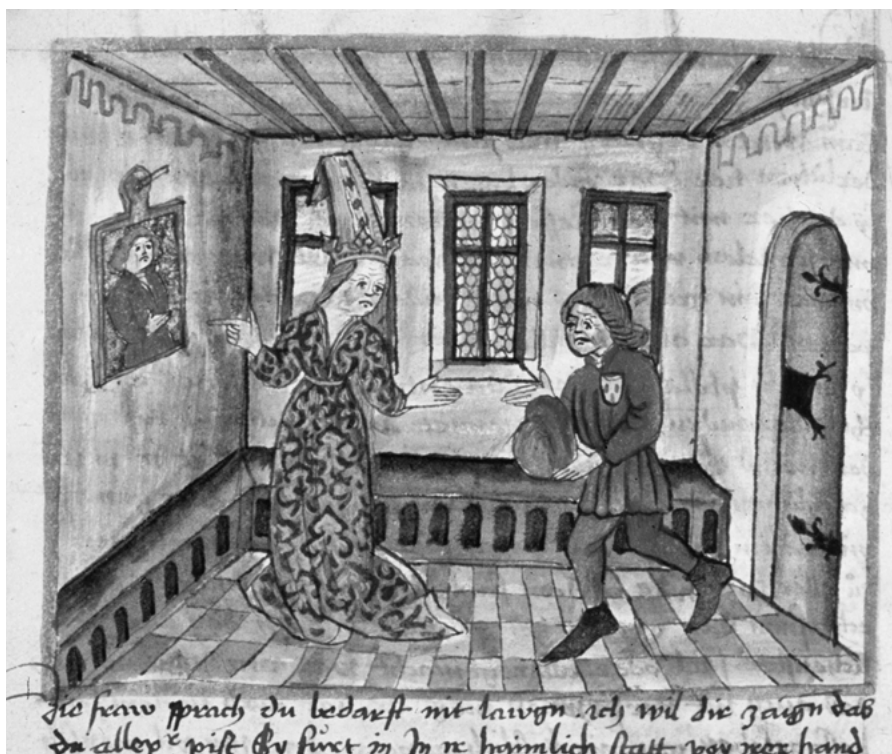 die fraw sprach du bedarft nit lawgn ich wil dir zaign das
du allexr pist Sy furt in In ir haimlich statt vnd